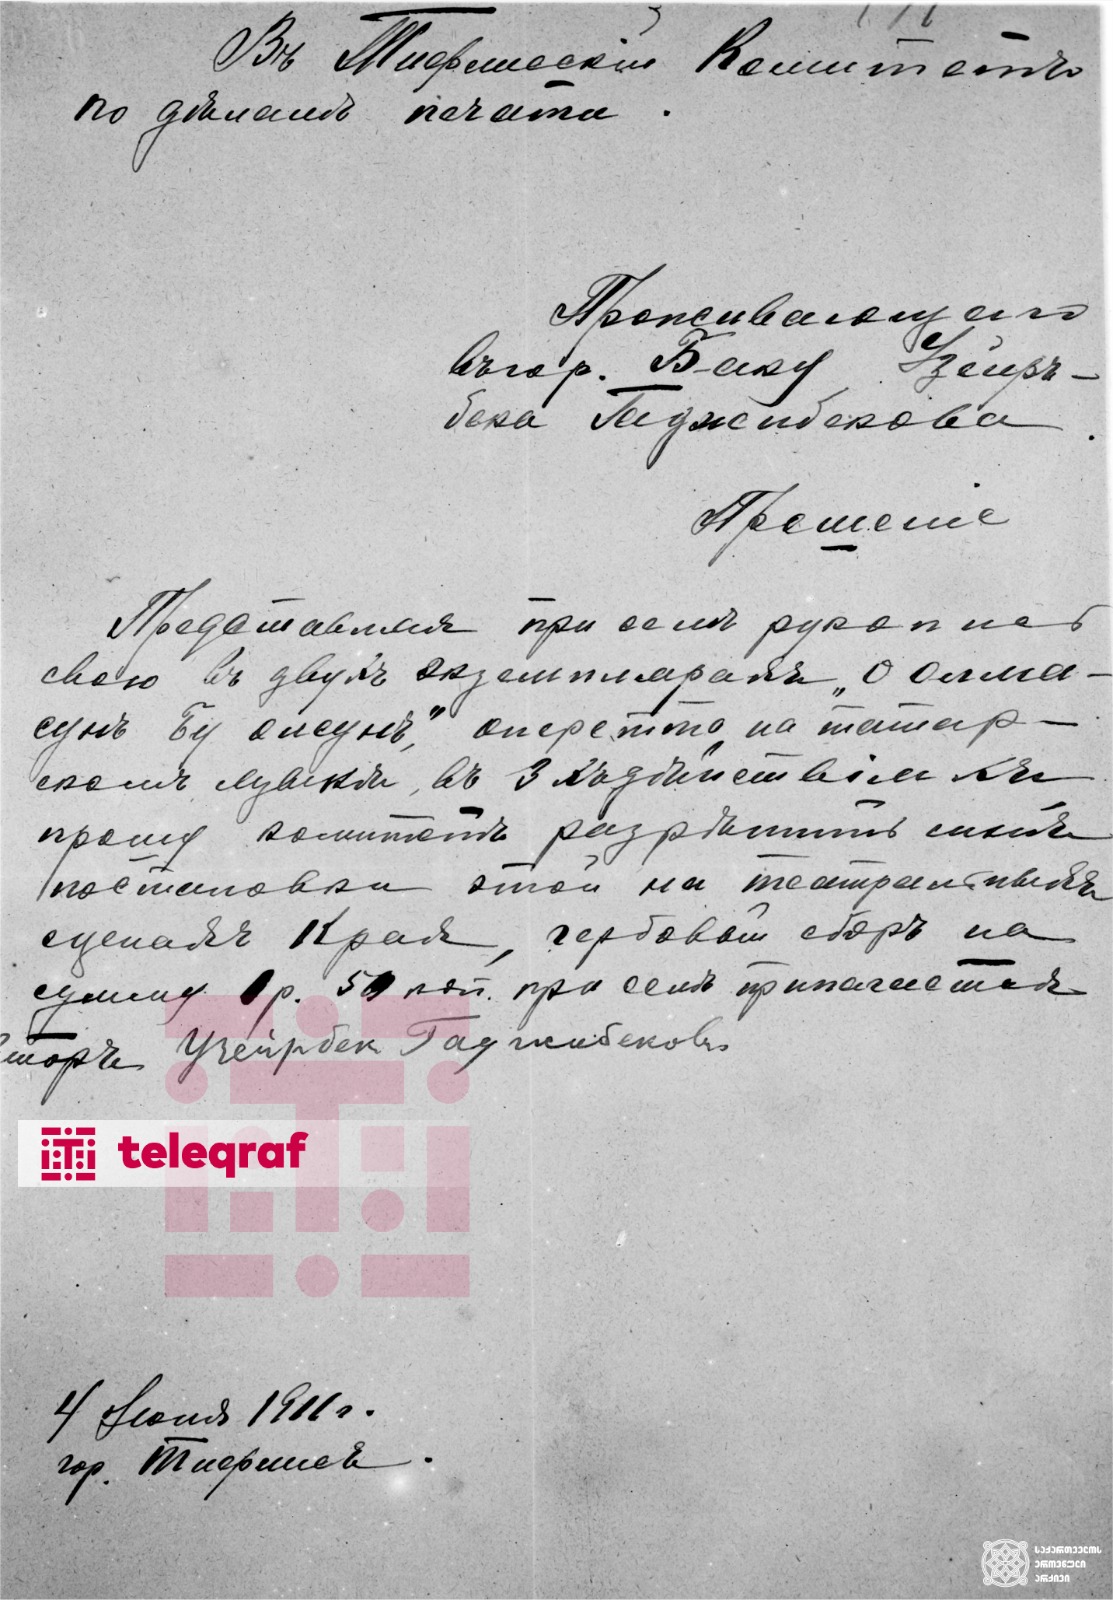 Въ Тифлисскій Комитетъ
по дѣламъ печати.
Проживающаго
въ гор. Баку Узеиръ-
бека Гаджибекова.
Прошеніе
Представляя при семъ рукопись
свою въ двухъ экземплярахъ „О олма-
сунъ бу олсунъ", оперетто на татар-
скомъ языкѣ, въ 3 хъ дѣйствіяхъ
прошу комитетъ разрѣшить
постановки этой на театральныхъ
сценахъ Края, гербовый сборъ на
сумму 1 р. 50 коп. при семъ прилагается
Узеирбек Гаджибековъ
teleqraf
4 Іюня 1911 г.
гор. Тифлисъ.
საქართველოს
ეროვნული
არქივი